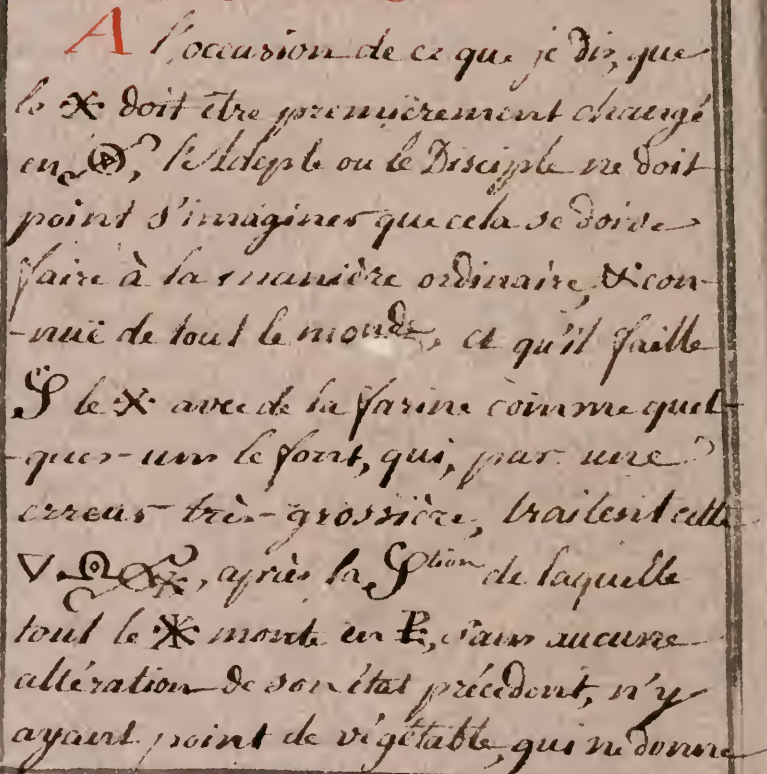 A l'occasion de ce que je dis, que
le ✶ doit être premièrement changé
en , l'Adepte ou le Disciple ne doit
point s'imaginer que cela se doive
faire à la manière ordinaire, & con-
-nuë de tout le monde, et qu'il faille
le ✶ avec de la farine comme quel-
-ques-uns le font, qui, par une
erreur très-grossière, traitent cette
▽ , après la tion de laquelle
tout le ✶ monte en , sans aucune
altération de son état précédent, n'y
ayant point de végétable, qui ne donne